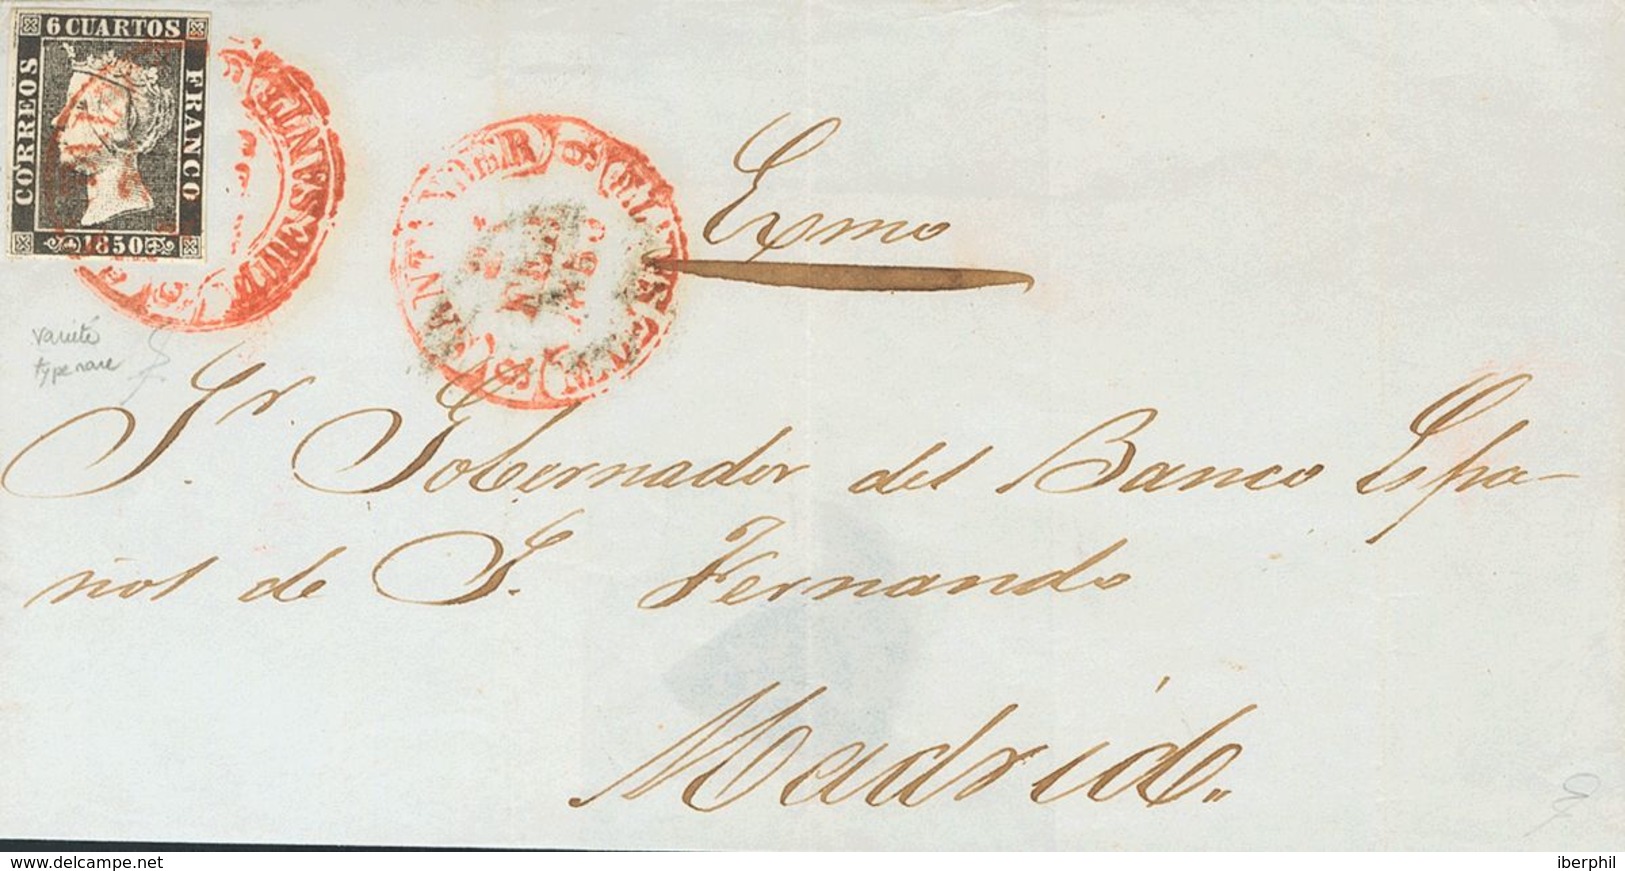 6 CUARTOS
CORREOS
FRANCO
1850
SANTANDER
SANT
varieté
type rare
Exmo
Sr. Gobernador del Banco Espa-
ñol de S. Fernando
Madrid.
www.delcampe.net
iberphil